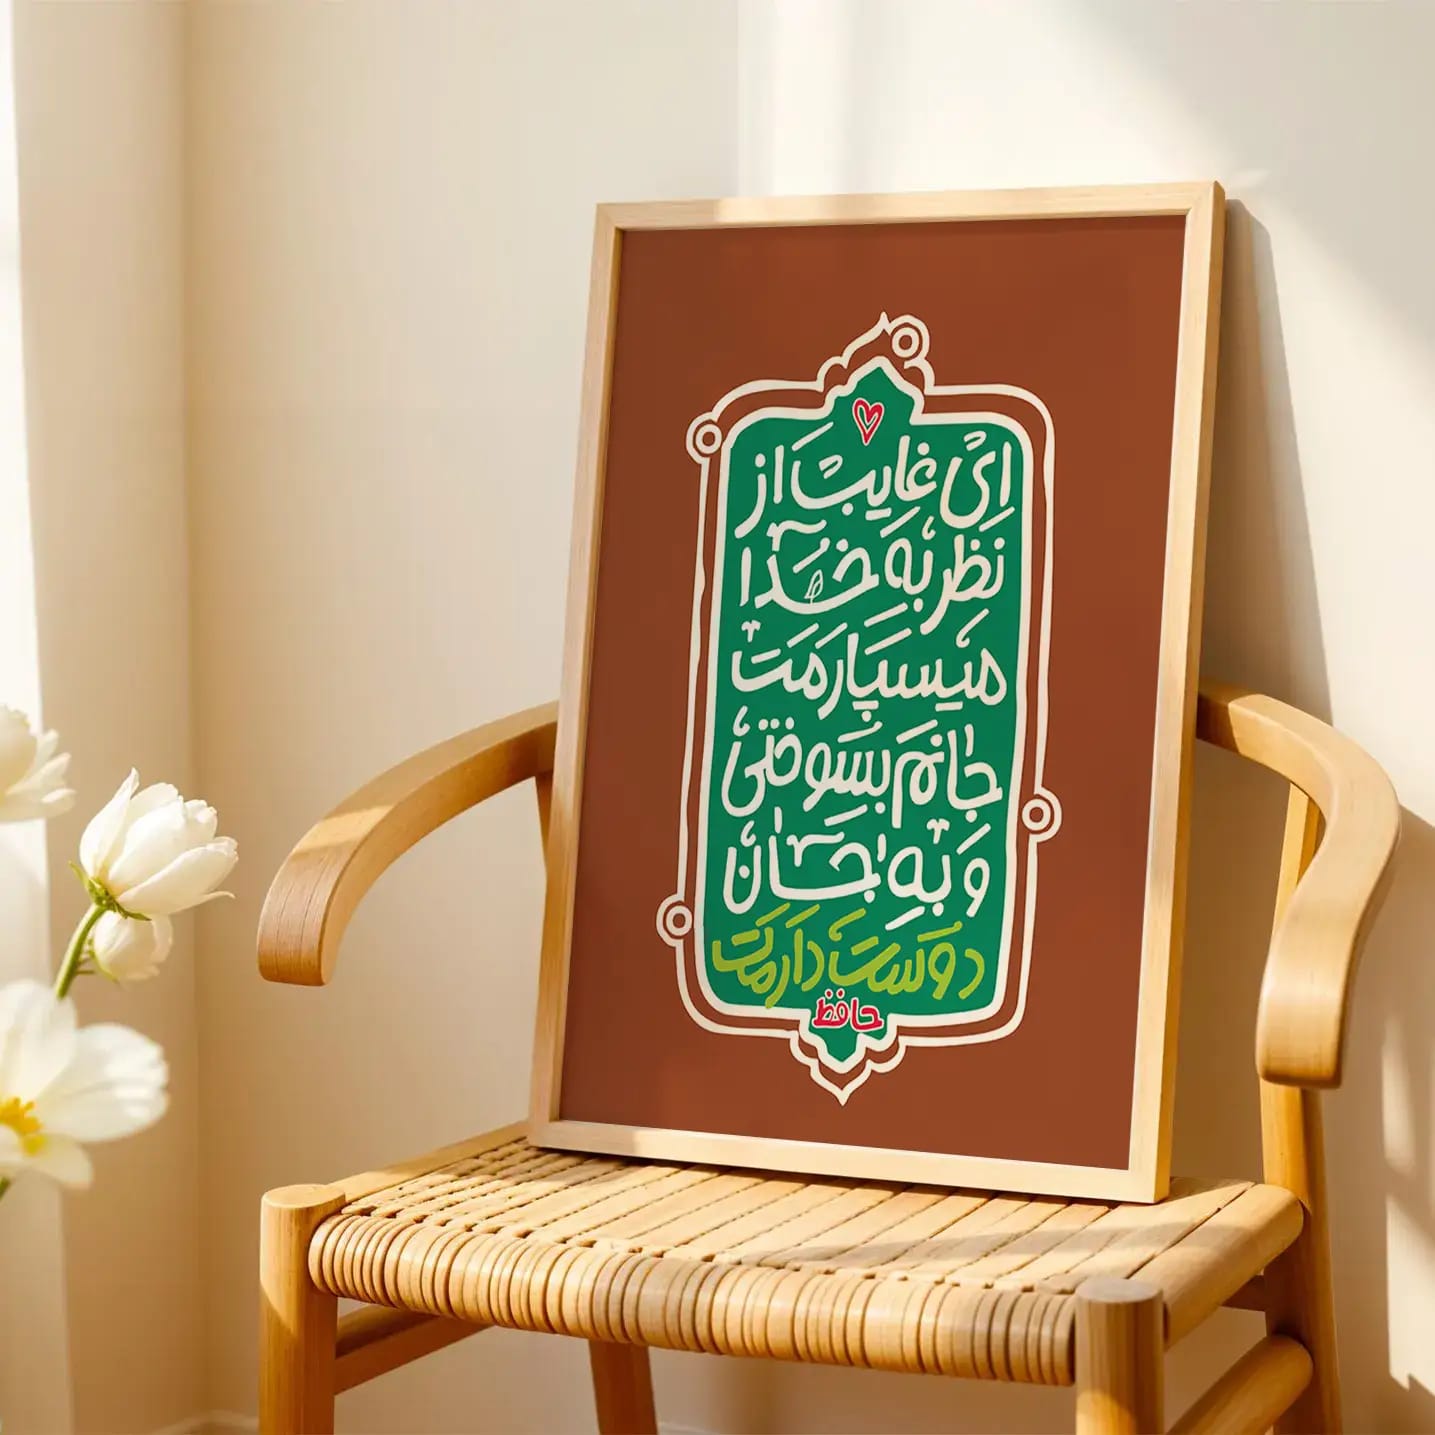 ای غایب از
نظر به خدا
میسپارمت
جانم بسوختی
و به جان
دوست دارمت
حافظ